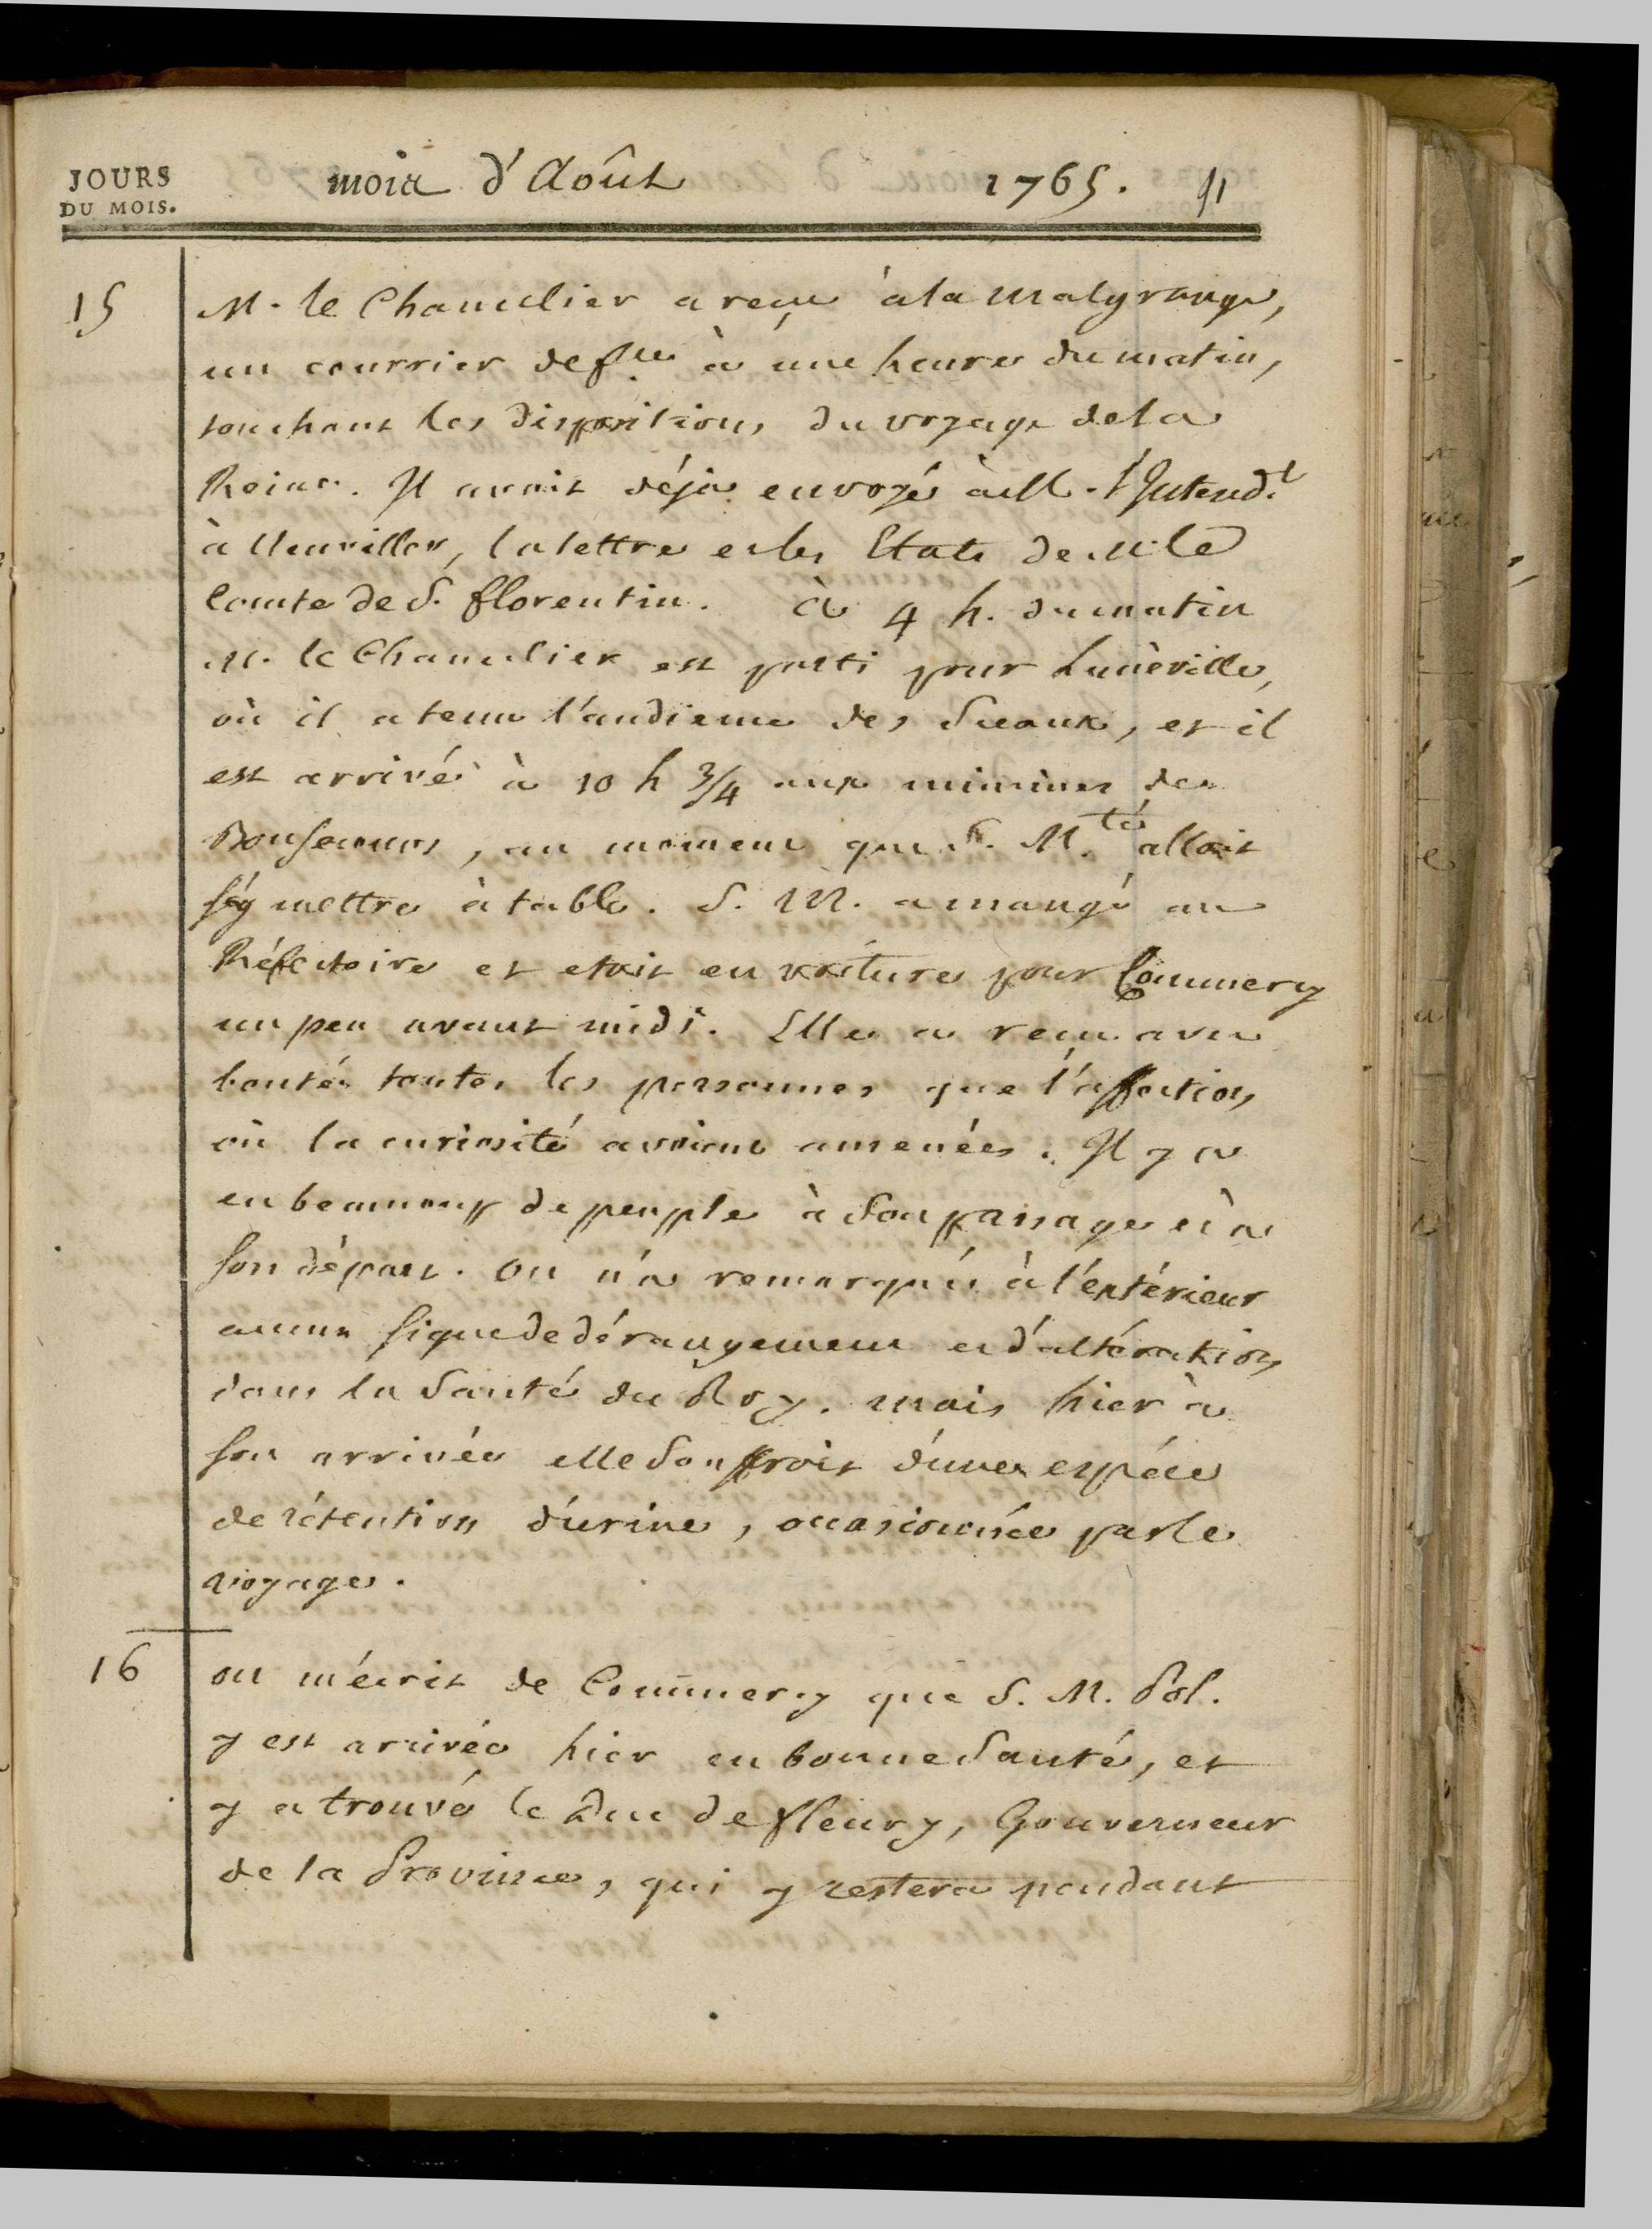 JOURS
DU MOIS.
mois d'Août 1765. 51
15 M. le Chancelier a reçu à la Malgrange,
un courrier de fce à une heure du matin,
touchant les dispositions du voyage de la
Reine. Il avoit déja envoyé à M. l'Intend.t
à Neuviller, la lettre et les Etats de M. le
Comte de S. florentin. à 4 h. du matin
M. le Chancelier est parti pour Lunéville,
où il a tenu l'audience des Sceaux, et il
est arrivé à 10 h 3/4 aux minimes de
Bonsecours, au moment que S. M.té alloit
s'y mettre à table. S. M. a mangé au
Réfectoire et etoit en voiture pour Commercy
un peu avant midi. Elle a reçu avec
bonté toutes les personnes que l'affection
où la curiosité avoient amenées. Il y a
eu beaucoup de peuple à son passage et à
son départ. on n'a remarqué à l'extérieur
aucun signe de dérangement et d'altération
dans la Santé du Roy. mais hier à
son arrivée elle souffroit d'une espéce
de rétention d'urine, occasionnée par le
voyage.
16 on m'écrit de Commercy que S. M. Pol.
y est arrivée hier en bonne Santé, et
y a trouvé le Duc de fleury, Gouverneur
de la Province, qui y restera pendant